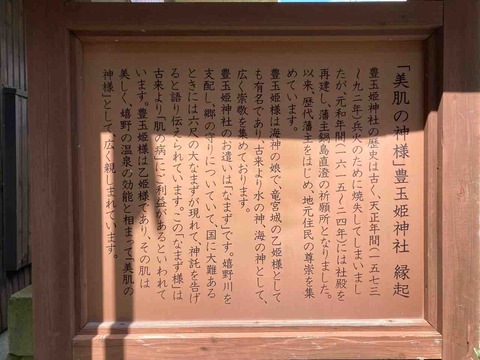 「美肌の神様」豊玉姫神社 縁起
豊玉姫神社の歴史は古く、天正年間(一五七三
〜九二年)兵火のために焼失してしまいまし
たが、元和年間(一六一五〜二四年)には社殿を
再建し、藩主鍋島直澄の祈願所となりました。
以来、歴代藩主をはじめ、地元住民の尊崇を集
めています。
豊玉姫様は海神の娘で、竜宮城の乙姫様として
も有名であり、古来より水の神、海の神として、
広く崇敬を集めております。
豊玉姫神社のお遣いは「なまず」です。嬉野川を
支配し、郷の守りについていて、国に大難ある
ときには六尺の大なまずが現れて、神託を告げ
ると語り伝えられています。この「なまず様」は
古来より「肌の病」にご利益があるといわれて
います。豊玉姫様は乙姫様であり、その肌は
美しく、嬉野の温泉の効能と相まって、「美肌の
神様」として、広く親しまれています。